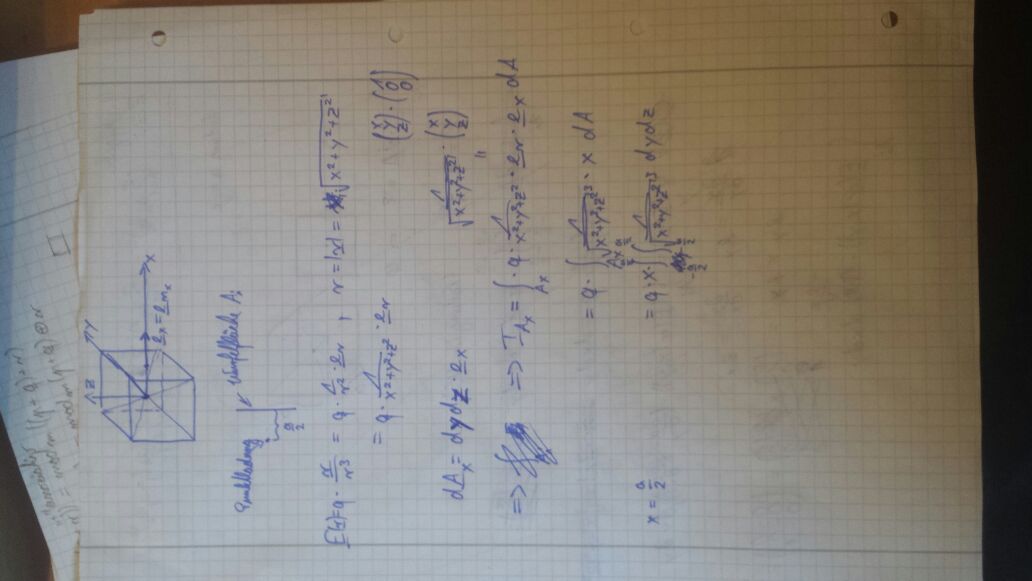 z
y
x
e_x = e_n_x
Punktladung
Würfelfläche A_i
a/2
E(r) = q · r/r³ = q · 1/r² · e_r , r = |r| = √(x²+y²+z²)
= q · 1/(x²+y²+z²) · e_r
(x y z) · (1 0 0)
dA_x = dydz · e_x
1/√(x²+y²+z²) · (x y z)
"
=> => I_A_x = ∫_A_x q · 1/(x²+y²+z²) · e_r · e_x dA
= q · ∫_A_x 1/√(x²+y²+z²)³ · x dA
x = a/2
= q · x · ∫_{-a/2}^{a/2} ∫_{-a/2}^{a/2} 1/√(x²+y²+z²)³ dydz